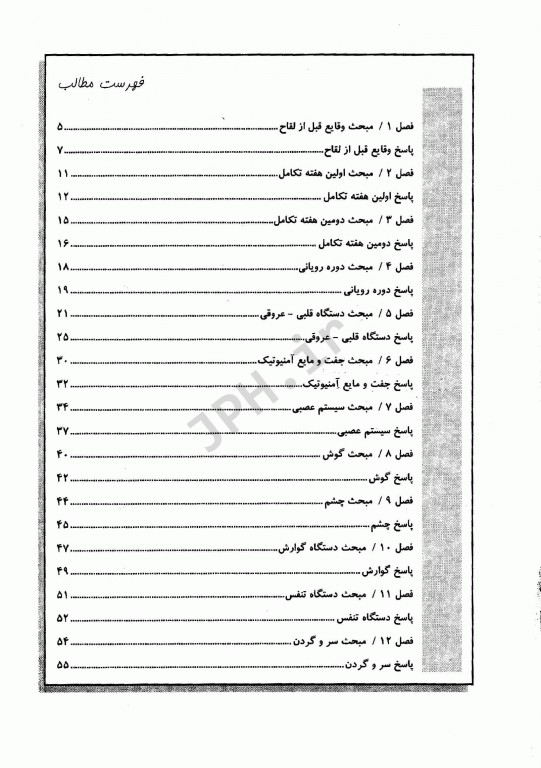 فهرست مطالب
فصل ۱ / مبحث وقایع قبل از لقاح ........ ۵
پاسخ وقایع قبل از لقاح ........ ۷
فصل ۲ / مبحث اولین هفته تکامل ........ ۱۱
پاسخ اولین هفته تکامل ........ ۱۲
فصل ۳ / مبحث دومین هفته تکامل ........ ۱۵
پاسخ دومین هفته تکامل ........ ۱۶
فصل ۴ / مبحث دوره رویانی ........ ۱۸
پاسخ دوره رویانی ........ ۱۹
فصل ۵ / مبحث دستگاه قلبی - عروقی ........ ۲۱
پاسخ دستگاه قلبی - عروقی ........ ۲۵
فصل ۶ / مبحث جفت و مایع آمنیوتیک ........ ۳۰
پاسخ جفت و مایع آمنیوتیک ........ ۳۲
فصل ۷ / مبحث سیستم عصبی ........ ۳۴
پاسخ سیستم عصبی ........ ۳۷
فصل ۸ / مبحث گوش ........ ۴۰
پاسخ گوش ........ ۴۲
فصل ۹ / مبحث چشم ........ ۴۴
پاسخ چشم ........ ۴۵
فصل ۱۰ / مبحث دستگاه گوارش ........ ۴۷
پاسخ گوارش ........ ۴۹
فصل ۱۱ / مبحث دستگاه تنفس ........ ۵۱
پاسخ دستگاه تنفس ........ ۵۲
فصل ۱۲ / مبحث سر و گردن ........ ۵۴
پاسخ سر و گردن ........ ۵۵
JPH.ir